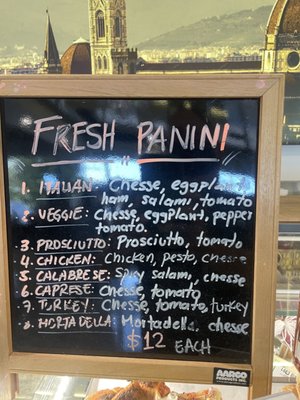 FRESH PANINI
1. ITALIAN: Chesse, eggplant,
ham, salami, tomato
2. VEGGIE: Chesse, eggplant, pepper
tomato.
3. PROSCIUTTO: Prosciutto, tomato
4. CHICKEN: Chicken, pesto, chesse
5. CALABRESE: Spicy salami, chesse
6. CAPRESE: Chesse, tomato
7. TURKEY: Chesse, tomato, turkey
8. MORTADELLA: Mortadella, chesse
$12 EACH
AARCO
PRODUCTS INC